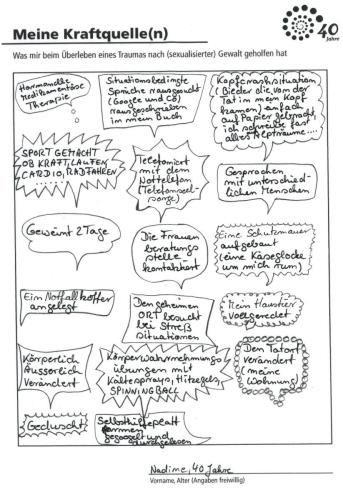 Meine Kraftquelle(n)
40
Jahre
Was mir beim Überleben eines Traumas nach (sexualisierter) Gewalt geholfen hat
Hormonelle
Medikamentöse
Therapie
Situationsbedingte
Sprüche rausgesucht
(Google und Co)
rausgeschrieben
in mein Buch
Kopfcrashsituation
(Bieder die von der
Tat im mein Kopf
kamen) einfach
auf Papier gebracht,
ich schreibe fast
alles Alpträume....
SPORT GEMACHT
OB KRAFT, LAUFEN
CARDIO, RADFAHREN
....
Telefoniert
mit dem
Nottelefon
(Telefonseel-
sorge)
Gesprochen
mit unterschied-
lichen Menschen
Geweint 2 Tage
Die Frauen
beratungs
stelle
kontaktiert
Eine Schutzmauer
aufgebaut
(eine Käseglocke
um mich rum)
Ein Notfallkoffer
angelegt
Den geheimen
ORT besucht
bei Streß
situationen
Mein Haustier
vollgeredet
Körperlich
Äusserlich
Verändert
Körperwahrnehmungs
übungen mit
Kältesprays, Hitzegels,
SPINNINGBALL
Den Tatort
verändert
(meine
Wohnung)
Geduscht
Selbsthilfeplatt
formen
gegoogelt und
durchgelesen
Nadine, 40 Jahre
Vorname, Alter (Angaben freiwillig)